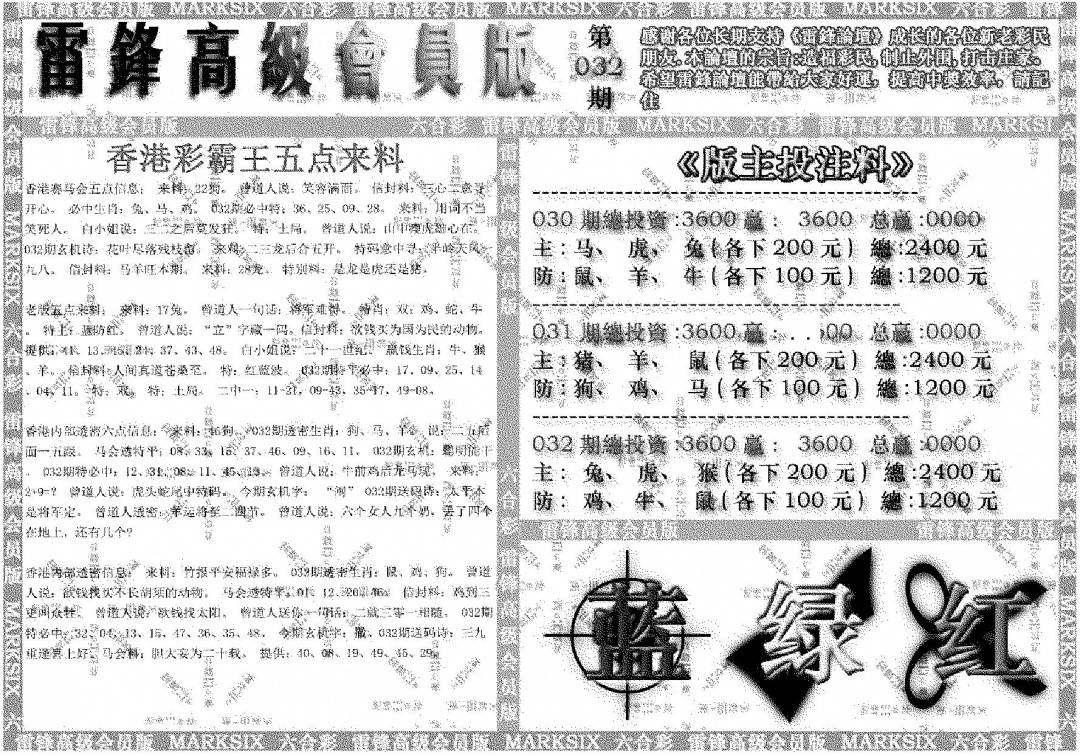 雷锋高级会员版 MARKSIX 六合彩 雷锋高级会员版 MARKSIX 六合彩 雷锋高级会员版 MARKSIX 六合彩
雷鋒高級會員版
第
032
期
感謝各位长期支持《雷鋒論壇》成长的各位新老彩民
朋友.本論壇的宗旨:造福彩民,制止外围,打击庄家.
希望雷鋒論壇能帶給大家好運，提高中獎效率，請記
住
雷锋高级会员版 六合彩 雷锋高级会员版 MARKSIX 六合彩 雷锋高级会员版 MARKSIX
香港彩霸王五点来料
香港赛马会五点信息： 来料：22狗。 曾道人说：笑容满面。 信封料：三心二意寻
开心。 必中生肖：兔、马、鸡。 032期必中特：36、25、09、28。 来料：用词不当
笑死人。 白小姐说：三二之后莫发狂。 特：土局。 曾道人说：山中瘦虎雄心在。
032期玄机诗：花叶尽落残枝留。 来料：二三龙后合五开。 特码意中寻：半岭天风
九八。 信封料：马羊旺本期。 来料：28龙。 特别料：是龙是虎还是猪。
老版五点来料： 来料：17兔。 曾道人一句话：将军难得。 特肖：双：鸡、蛇、牛
。 特土：蓝防红。 曾道人说：“立”字藏一码。信封料：欲钱买为国为民的动物。
提供：41、13、15、24、37、43、48。 白小姐说：二十一世纪。 赢钱生肖：牛、猴
、羊。 信封料：人间真道苍桑至。 特：红蓝波。 032期特平必中：17、09、25、14
、04、11。 特：双。 特：土局。 二中一：11-27，09-43，35-17，49-08。
香港内部透密六点信息： 来料：46狗。 032期透密生肖：狗、马、羊。 说：二五后
面一五跟。 马会透特平：08、33、15、37、46、09、16、11。 032期玄机：聪明能干
。 032期特必中：12、31、08、11、45、19。 曾道人说：牛前鸡后龙马现。 来料：
2+9=？ 曾道人说：虎头蛇尾中特码。 今期玄机字： “闹” 032期送码诗：太平本
是将军定。 曾道人透密：幸运将至二四节。 曾道人说：六个女人九个奶，丢了四个
在地上，还有几个？
香港内部透密信息： 来料：竹报平安福禄多。 032期透密生肖：鼠、鸡、狗。 曾道
人说：欲钱找买不长胡须的动物。 马会透特平：01、12、20、46。 信封料：鸡到三
更叫众牲。 曾道人说：欲钱找太阳。 曾道人送你一句话：二就三零一相随。 032期
特必中：32、04、13、15、47、36、35、48。 今期玄机字：撒、032期送码诗：三九
重逢喜上好。马会料：胆大妄为二十载。 提供：40、08、19、49、45、29。
《版主投注料》
030 期總投資:3600 赢: 3600 总赢:0000
主:马、虎、兔(各下 200 元) 總:2400 元
防:鼠、羊、牛(各下 100 元) 總:1200 元
031 期總投資:3600 赢: 总赢:0000
主:猪、羊、鼠(各下 200 元) 總:2400 元
防:狗、鸡、马(各下 100 元) 總:1200 元
032 期總投資:3600 赢: 3600 总赢:0000
主:兔、虎、猴(各下 200 元) 總:2400 元
防:鸡、牛、鼠(各下 100 元) 總:1200 元
雷锋高级会员版 雷锋高级会员版
藍 绿 红
雷锋高级会员版 MARKSIX 六合彩 雷锋高级会员版 MARKSIX 六合彩 雷锋高级会员版 MARKSIX 六合彩 雷锋